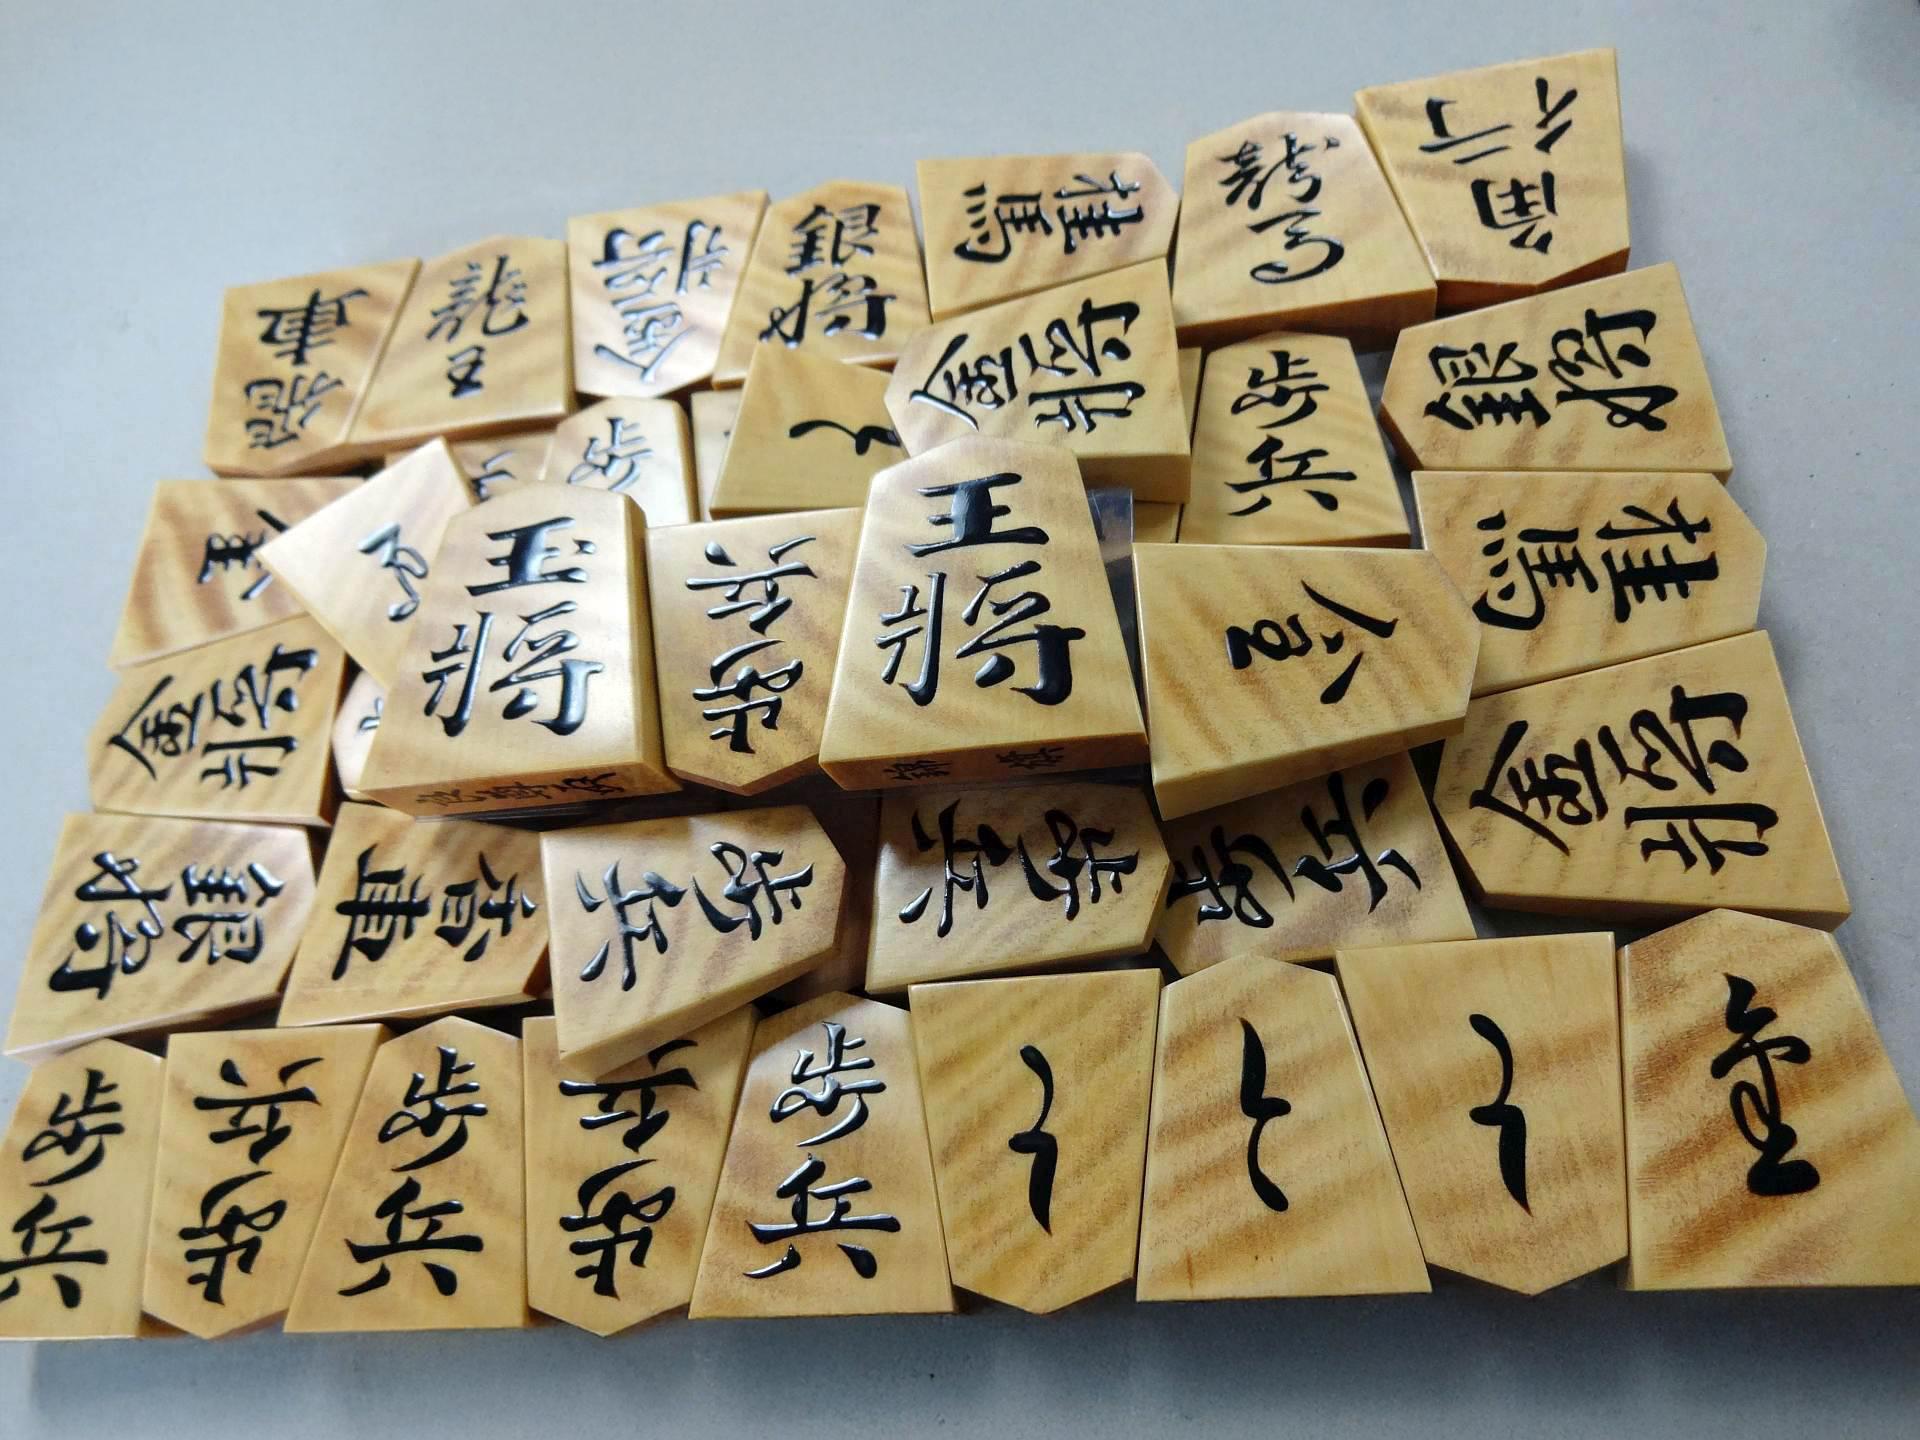 香車
龍王
金将
銀将
桂馬
龍馬
香車
金将
歩兵
銀将
歩
と
全
と
玉将
歩兵
王将
金
桂馬
金将
金将
銀将
香車
歩兵
歩兵
歩兵
歩兵
歩兵
歩兵
歩兵
歩兵
と
と
と
全